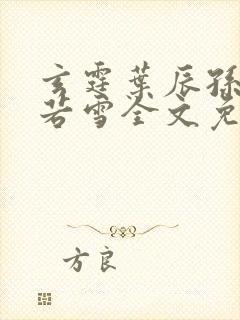 玄霆叶辰孙
若雪全文免
方良